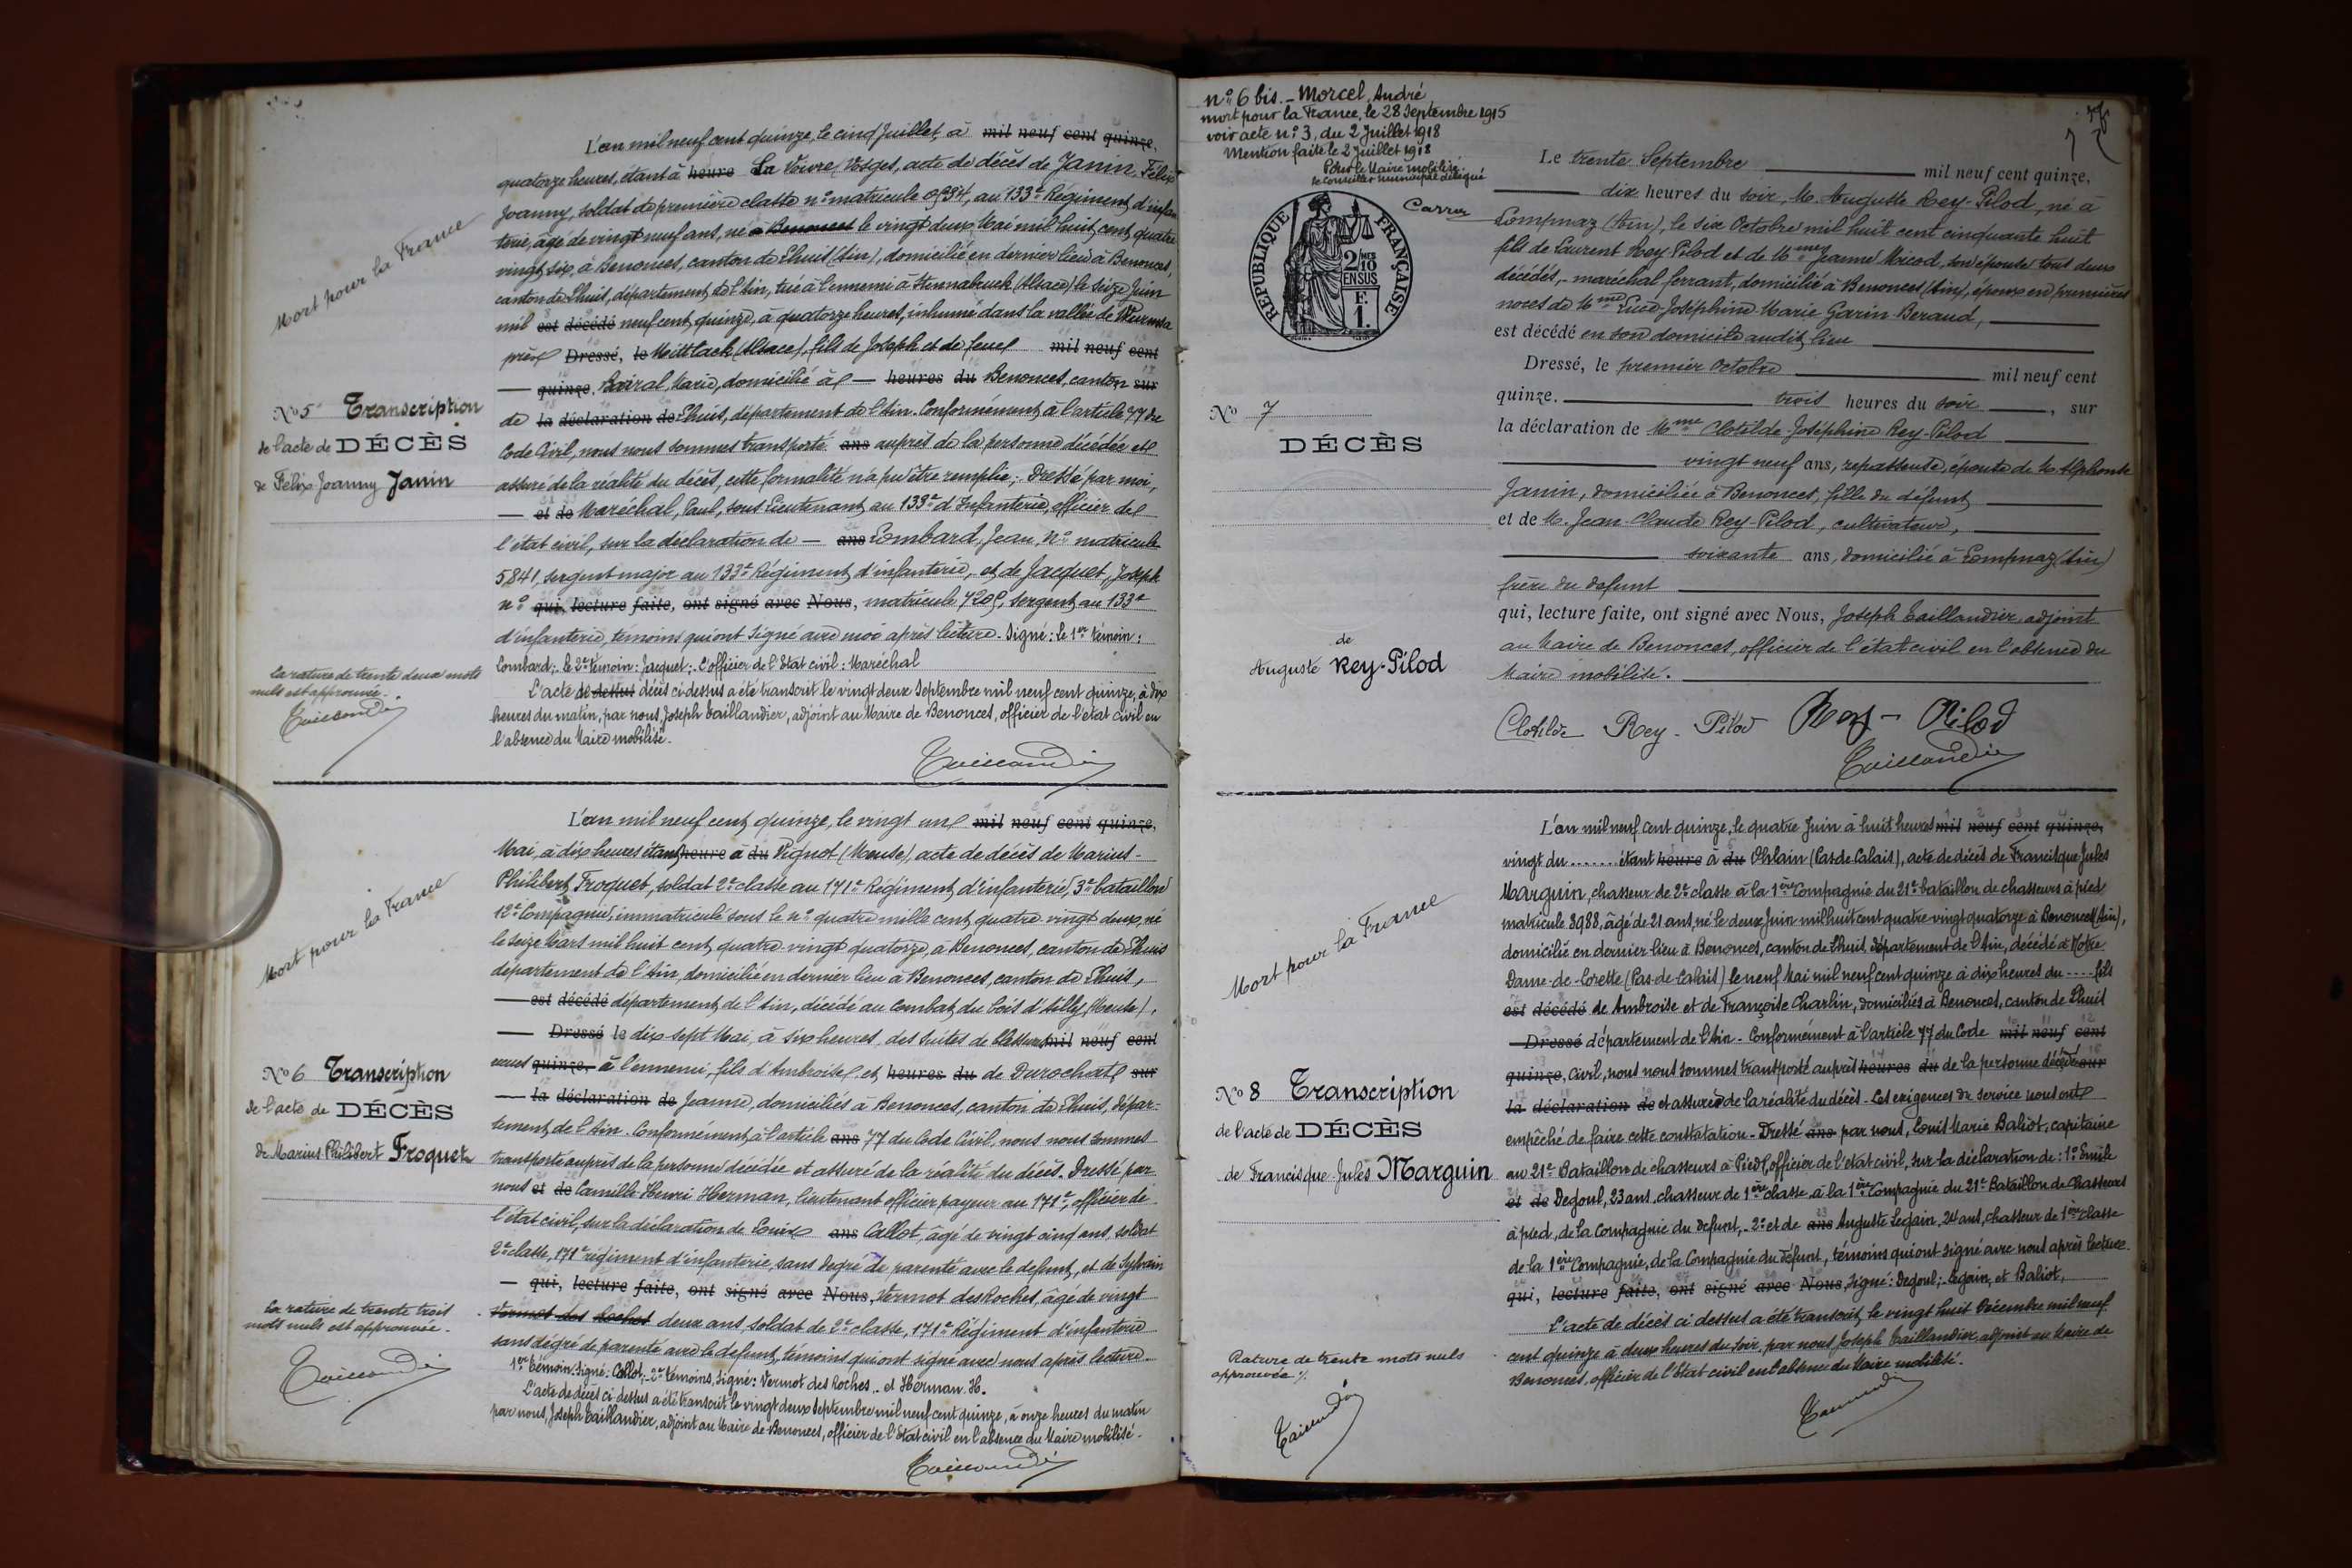 Mort pour la France
No 5 Transcription
de l'acte de DÉCÈS
de Félix Joanny Janin
L'an mil neuf cent quinze, le cinq Juillet, à mil neuf cent quinze,
quatorze heures, étant à heure La Voivre, Vosges, acte de décès de Janin, Félix
Joanny, soldat de première classe n° matricule, au 133e Régiment d'infan
terie, âgé de vingt neuf ans, né à Benonces le vingt deux Mai mil huit cent quatre
vingt six, à Benonces, canton de Lhuis (Ain), domicilié en dernier lieu à Benonces,
canton de Lhuis, département de l'Ain, tué à l'ennemi à (Alsace) le seize Juin
mil est décédé neuf cent quinze, à quatorze heures, inhumé dans la vallée de
près Dressé, le Mittlach (Alsace), fils de Joseph et de feue mil neuf cent
quinze, Marie, domicilié à heures du Benonces, canton sur
de la déclaration de Lhuis, département de l'Ain. Conformément à l'article 77 du
Code Civil, nous nous sommes transporté ans auprès de la personne décédée et
assuré de la réalité du décès, cette formalité n'a pu être remplie; Dressé par moi,
et de Maréchal, Paul, sous Lieutenant au 133e d'Infanterie, officier de
l'état civil, sur la déclaration de ans Lombard, Jean, N° matricule
5841, sergent major au 133e Régiment d'infanterie, et de Jacquet, Joseph
n° qui, lecture faite, ont signé avec Nous, matricule, sergent au 133e
d'infanterie, témoins qui ont signé avec moi après lecture. Signé: le 1er témoin:
Lombard; le 2e témoin: Jacquet; L'officier de l'Etat civil: Maréchal
L'acte de dessus décès ci-dessus a été transcrit le vingt deux Septembre mil neuf cent quinze, à dix
heures du matin, par nous, Joseph Taillandier, adjoint au Maire de Benonces, officier de l'état civil en
l'absence du Maire mobilisé.
Taillandier
La rature de trente deux mots
nuls est approuvée.
Taillandier
Mort pour la France
No 6 Transcription
de l'acte de DÉCÈS
de Marius Philibert Froquet
L'an mil neuf cent quinze, le vingt un mil neuf cent quinze,
Mai, à dix heures étant heure à du Pignot (Meuse), acte de décès de Marius-
Philibert Froquet, soldat 2e classe au 171e Régiment d'infanterie, 3e bataillon
12e Compagnie, immatriculé sous le n° quatre mille cent quatre vingt deux, né
le seize Mars mil huit cent quatre-vingt quatorze, à Benonces, canton de Lhuis
département de l'Ain, domicilié en dernier lieu à Benonces, canton de Lhuis,
est décédé département de l'Ain, décédé au combat du bois d'Ailly (Meuse),
Dressé le dix sept Mai, à six heures, des suites de blessures mil neuf cent
reçues quinze, à l'ennemi, fils d'Ambroise et heures du de Durochat sur
la déclaration de Jeanne, domiciliés à Benonces, canton de Lhuis, dépar-
tement de l'Ain. Conformément à l'article ans 77 du Code Civil, nous nous sommes
transporté auprès de la personne décédée et assuré de la réalité du décès. Dressé par
nous et de Camille Henri Herman, lieutenant officier payeur au 171e, officier de
l'état civil, sur la déclaration de Louis ans Callot, âgé de vingt cinq ans, soldat
2e classe, 171e régiment d'infanterie, sans degré de parenté avec le défunt, et de Sylvain
qui, lecture faite, ont signé avec Nous, Vermot des Roches, âgé de vingt
Vermot des Roches deux ans, soldat de 2e classe, 171e Régiment d'infanterie
sans degré de parenté avec le défunt, témoins qui ont signé avec nous après lecture.
1er témoin, Signé: Callot; 2e témoins, Signé: Vermot des Roches .. et Herman. H.
L'acte de décès ci dessus a été transcrit le vingt deux Septembre mil neuf cent quinze, à onze heures du matin
par nous, Joseph Taillandier, adjoint au Maire de Benonces, officier de l'Etat civil en l'absence du Maire mobilisé.
Taillandier
La rature de trente trois
mots nuls est approuvée.
Taillandier
n° 6 bis. - Morcel, André
mort pour la France, le 28 Septembre 1915
voir acte n° 3, du 2 Juillet 1918
Mention faite le 2 Juillet 1918
Pour le Maire mobilisé.
le Conseiller municipal délégué
RÉPUBLIQUE FRANÇAISE
2/10 MES
EN SUS
F.
1.
No 7
DÉCÈS
de
Auguste Rey-Pilod
Le trente Septembre mil neuf cent quinze,
dix heures du soir, M. Auguste Rey-Pilod, né à
Lompnaz (Ain), le six Octobre mil huit cent cinquante huit
fils de Laurent Rey-Pilod et de Mme Jeanne Micod, son épouse tous deux
décédés, maréchal ferrant, domicilié à Benonces (Ain), époux en premières
noces de Mme Joséphine Marie Garin-Beraud,
est décédé en son domicile audit lieu
Dressé, le premier Octobre mil neuf cent
quinze. trois heures du soir, sur
la déclaration de Mme Clotilde-Joséphine Rey-Pilod
vingt neuf ans, repasseuse, épouse de M. Alphonse
Janin, domiciliée à Benonces, fille du défunt
et de M. Jean-Claude Rey-Pilod, cultivateur,
soixante ans, domicilié à Lompnaz (Ain)
frère du défunt
qui, lecture faite, ont signé avec Nous, Joseph Taillandier adjoint
au Maire de Benonces, officier de l'état civil en l'absence du
Maire mobilisé.
Clotilde Rey-Pilod Rey-Pilod
Taillandier
Mort pour la France
No 8 Transcription
de l'acte de DÉCÈS
de Francisque Jules Marguin
L'an mil neuf cent quinze, le quatre Juin à huit heures mil neuf cent quinze,
vingt du ....... étant heure à du Ohlain (Pas de Calais), acte de décès de Francisque Jules
Marguin, chasseur de 2e classe à la 1ère Compagnie du 21e bataillon de chasseurs à pied
matricule 3988, âgé de 21 ans, né le deux Juin mil huit cent quatre vingt quatorze à Benonces (Ain),
domicilié en dernier lieu à Benonces, canton de Lhuis, département de l'Ain, décédé à Notre
Dame-de-Lorette (Pas-de-Calais) le neuf Mai mil neuf cent quinze à dix heures du .... fils
est décédé de Ambroise et de Françoise Charlin, domiciliés à Benonces, canton de Lhuis
Dressé département de l'Ain. Conformément à l'article 77 du Code mil neuf cent
quinze, civil, nous nous sommes transporté auprès heures du de la personne décédée sur
la déclaration de et assuré de la réalité du décès. Les exigences du service nous ont
empêché de faire cette constatation. Dressé ans par nous, Louis Marie Baliot, capitaine
au 21e Bataillon de chasseurs à Pied, officier de l'état civil, sur la déclaration de: 1° Emile
et de Degoul, 23 ans, chasseur de 1ère classe à la 1ère Compagnie du 21e Bataillon de Chasseurs
à pied, de la compagnie du défunt, 2° et de ans Auguste Legain, 24 ans, chasseur de 1ère classe
de la 1ère Compagnie, de la Compagnie du défunt, témoins qui ont signé avec nous après lecture.
qui, lecture faite, ont signé avec Nous, Signé: Degoul; Legain, et Baliot,
L'acte de décès ci dessus a été transcrit le vingt huit Décembre mil neuf
cent quinze à deux heures du soir, par nous Joseph Taillandier, adjoint au Maire de
Benonces, officier de l'Etat civil en l'absence du Maire mobilisé.
Taillandier
Rature de trente mots nuls
approuvée
Taillandier